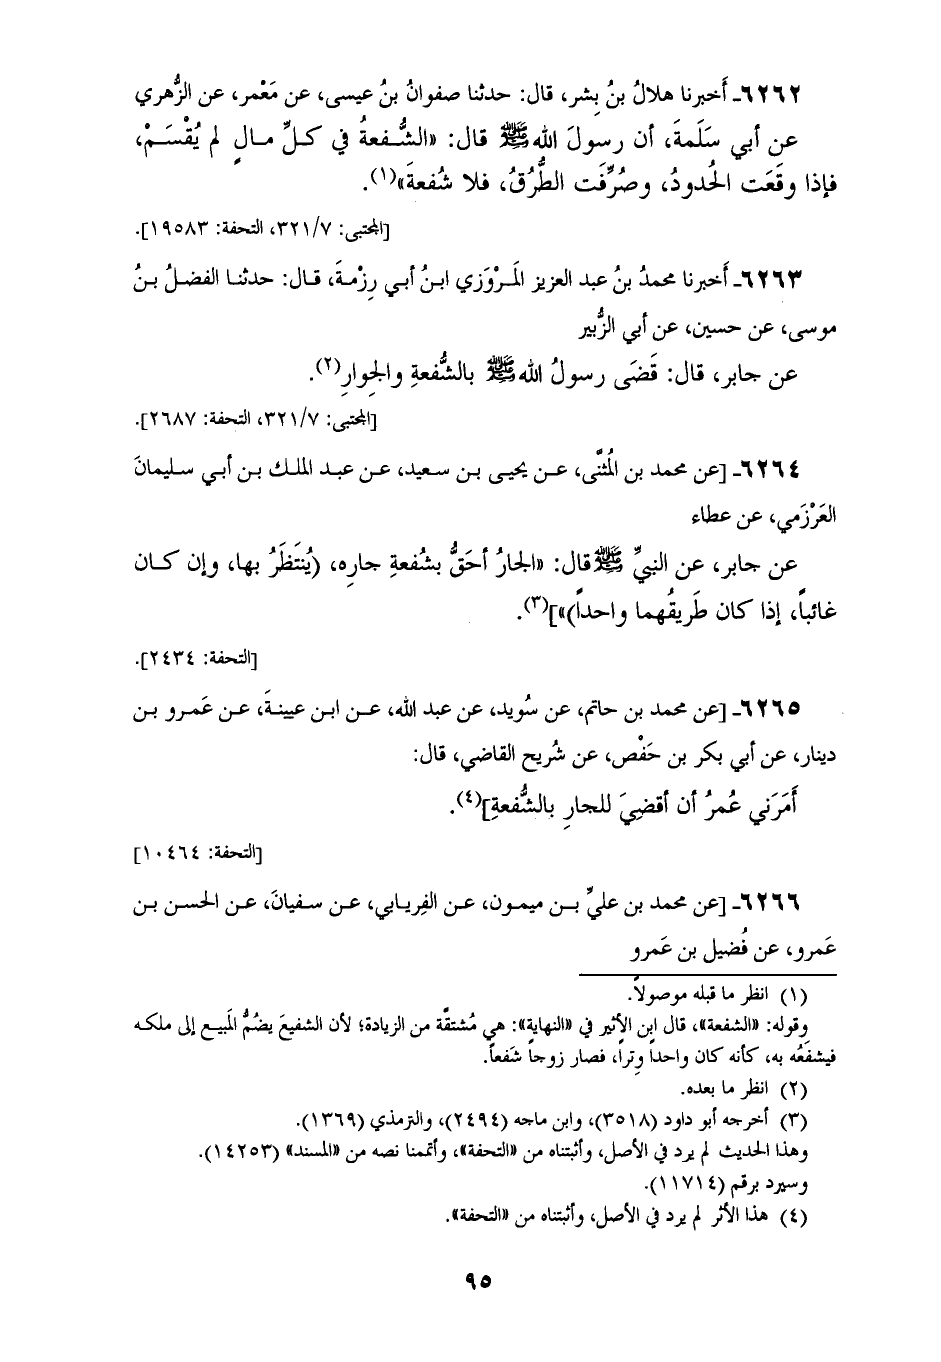 ٦٢٦٢ـ أخبرنا هلالُ بنُ بِشر، قال: حدثنا صفوانُ بنُ عيسى، عن مَعْمر، عن الزُّهري
عن أبي سَلَمةَ، أن رسولَ الله ﷺ قال: «الشُّفعةُ في كلِّ مالٍ لم يُقْسَمْ،
فإذا وقَعَت الحُدودُ، وصُرِّفَت الطُّرُقُ، فلا شُفعةَ»(١).
[المجتبى: ٣٢١/٧، التحفة: ١٩٥٨٣].
٦٢٦٣ـ أخبرنا محمدُ بنُ عبد العزيز المَرْوَزي ابنُ أبي رِزْمةَ، قال: حدثنا الفضلُ بنُ
موسى، عن حسين، عن أبي الزُّبير
عن جابر، قال: قَضَى رسولُ الله ﷺ بالشُّفعةِ والجِوارِ(٢).
[المجتبى: ٣٢١/٧، التحفة: ٢٦٨٧].
٦٢٦٤ـ [عن محمد بن المُثنَّى، عن يحيى بن سعيد، عن عبد الملك بن أبي سليمانَ
العَرْزَمي، عن عطاء
عن جابر، عن النبيِّ ﷺ قال: «الجارُ أحَقُّ بشُفعةِ جارِه، (يُنتَظَرُ بها، وإن كان
غائباً، إذا كان طَريقُهما واحداً)»](٣).
[التحفة: ٢٤٣٤].
٦٢٦٥ـ [عن محمد بن حاتم، عن سُويد، عن عبد الله، عن ابن عيينةَ، عن عَمرو بن
دينار، عن أبي بكر بن حَفْص، عن شُريح القاضي، قال:
أَمَرَني عُمرُ أن أقضِيَ للجارِ بالشُّفعةِ](٤).
[التحفة: ١٠٤٦٤]
٦٢٦٦ـ [عن محمد بن عليِّ بن ميمون، عن الفِريابي، عن سفيانَ، عن الحسن بن
عَمرو، عن فُضيل بن عَمرو
(١) انظر ما قبله موصولاً.
وقوله: «الشفعة»، قال ابن الأثير في «النهاية»: هي مُشتقَّة من الزيادة؛ لأن الشفيعَ يضُمُّ المَبيع إلى ملكه
فيشفَعُه به، كأنه كان واحداً وِتراً، فصار زوجاً شَفعاً.
(٢) انظر ما بعده.
(٣) أخرجه أبو داود (٣٥١٨)، وابن ماجه (٢٤٩٤)، والترمذي (١٣٦٩).
وهذا الحديث لم يرد في الأصل، وأثبتناه من «التحفة»، وأتممنا نصه من «المسند» (١٤٢٥٣).
وسيرد برقم (١١٧١٤).
(٤) هذا الأثر لم يرد في الأصل، وأثبتناه من «التحفة».
٩٥